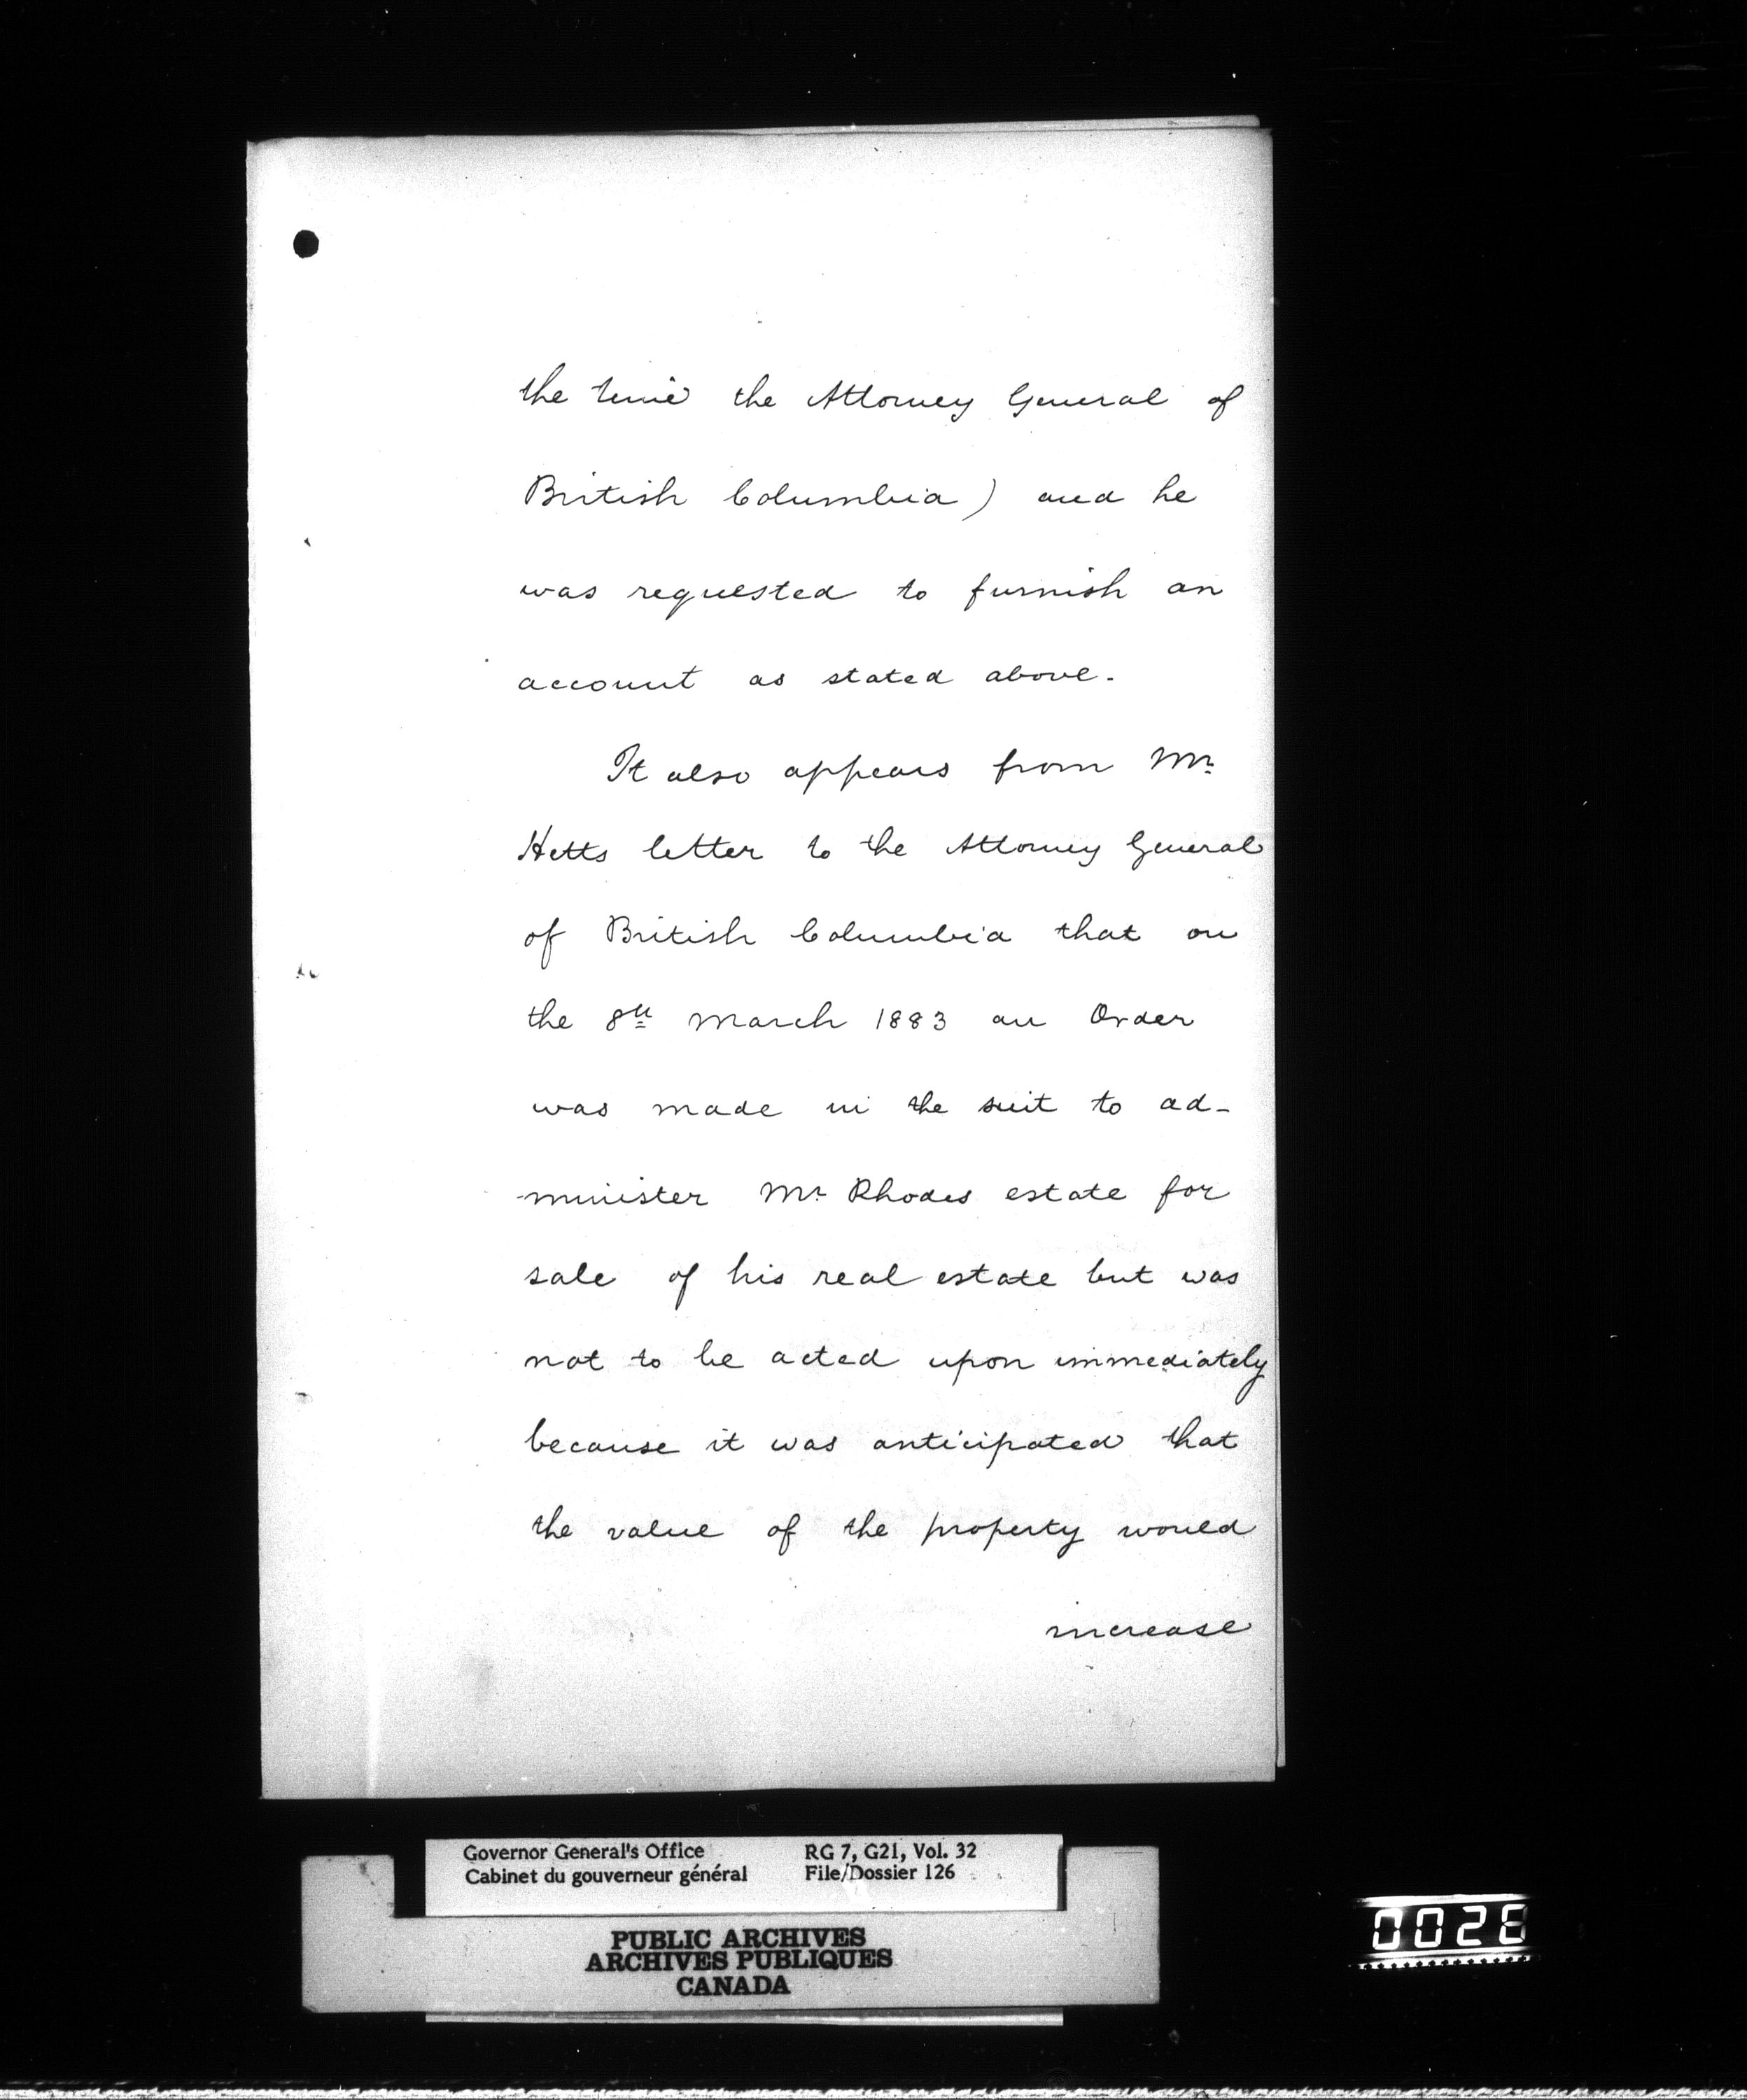 the time the Attorney General of
British Columbia) and he
was requested to furnish an
account as stated above.
It also appears from Mr.
Hetts letter to the Attorney General
of British Columbia that on
the 8th March 1883 an Order
was made in the suit to ad-
-minister Mr. Rhodes estate for
sale of his real estate but was
not to be acted upon immediately
because it was anticipated that
the value of the property would
increase
Governor General's Office RG 7, G21, Vol. 32
Cabinet du gouverneur général File/Dossier 126
PUBLIC ARCHIVES
ARCHIVES PUBLIQUES
CANADA